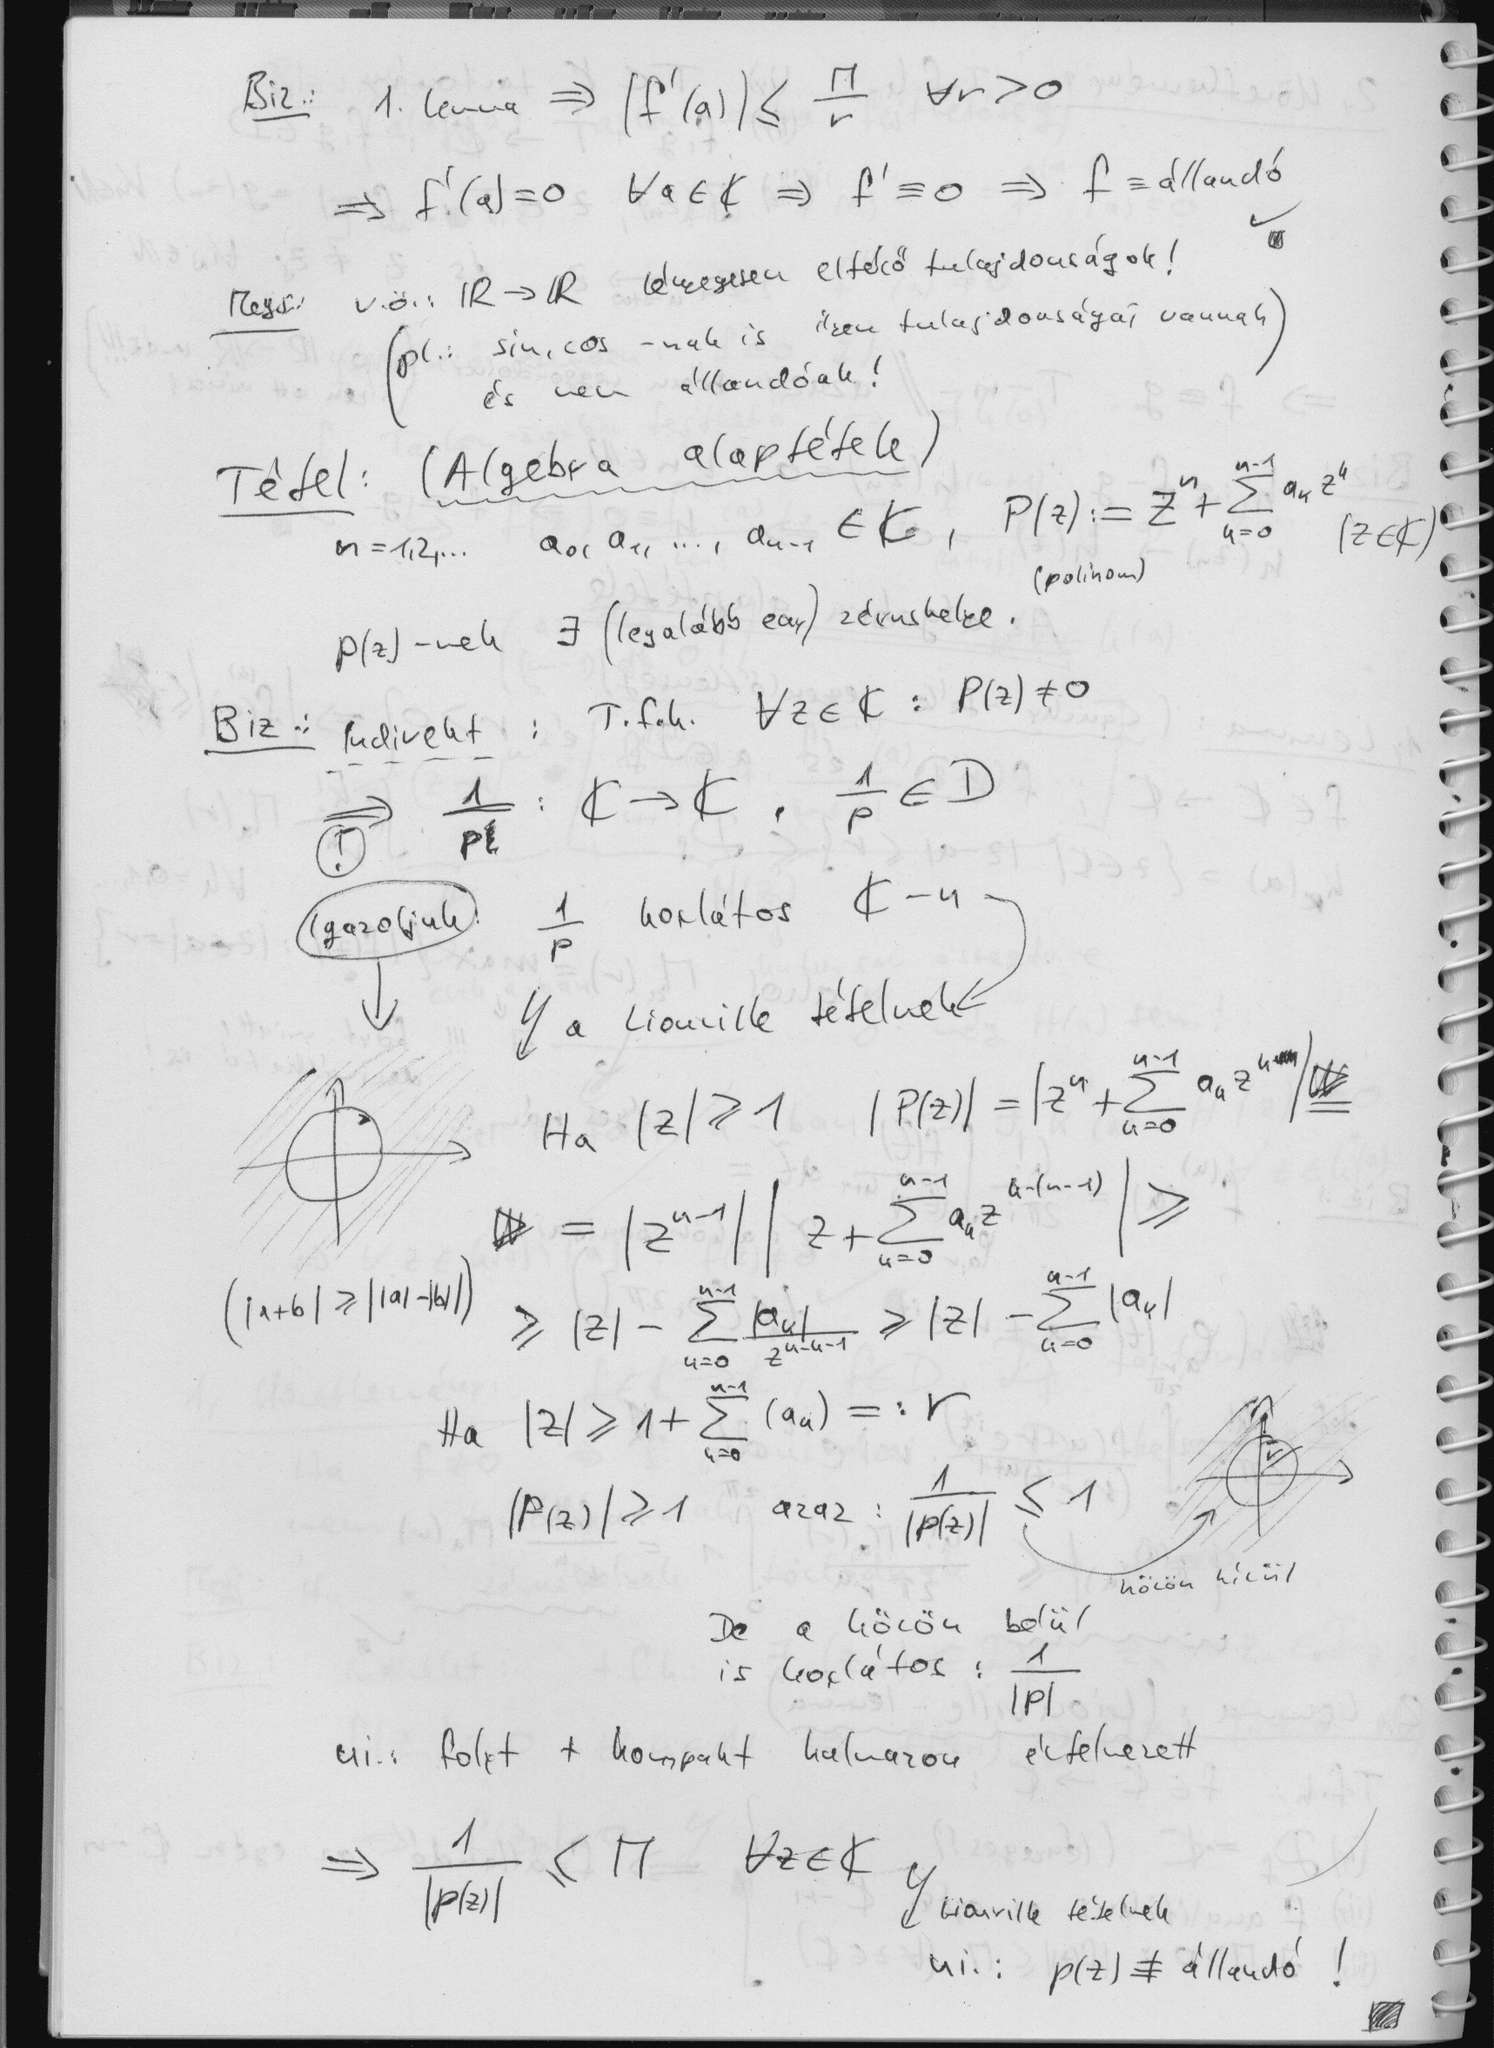 Biz.: 1. lemma ⇒ |f'(a)| ≤ M/r ∀r>0
⇒ f'(a)=0 ∀a∈ℂ ⇒ f'≡0 ⇒ f≡állandó ✓
Megj.: v.ö.: ℝ→ℝ lényegesen eltérő tulajdonságok!
(pl.: sin, cos -nak is ilyen tulajdonságai vannak
és nem állandóak!)
Tétel: (Algebra alaptétele)
n=1,2,... a₀, a₁, ..., aₙ₋₁ ∈ℂ, P(z) := zⁿ + ∑_{k=0}^{n-1} aₖ zᵏ (z∈ℂ)
(polinom)
p(z)-nek ∃ (legalább egy) zérushelye.
Biz.: Indirekt: T.f.h. ∀z∈ℂ: P(z)≠0
⇒ 1/p : ℂ→ℂ, 1/p ∈ D
!
Igazoljuk: 1/p korlátos ℂ-n
↯ a Liouville tételnek
Ha |z| ≥ 1 |P(z)| = |zⁿ + ∑_{k=0}^{n-1} aₖ zᵏ| =
= |zⁿ⁻¹| |z + ∑_{k=0}^{n-1} aₖ z^{k-(n-1)}| ≥
(|a+b| ≥ ||a|-|b||) ≥ |z| - ∑_{k=0}^{n-1} |aₖ|/z^{n-k-1} ≥ |z| - ∑_{k=0}^{n-1} |aₖ|
Ha |z| ≥ 1 + ∑_{k=0}^{n-1} (aₖ) =: r
r
|P(z)| ≥ 1 azaz: 1/|p(z)| ≤ 1
körön kívül
De a körön belül
is korlátos: 1/|p|
ui.: folyt + kompakt halmazon értelmezett
⇒ 1/|p(z)| ≤ M ∀z∈ℂ ↯
Liouville tételnek
ui.: p(z) ≢ állandó!